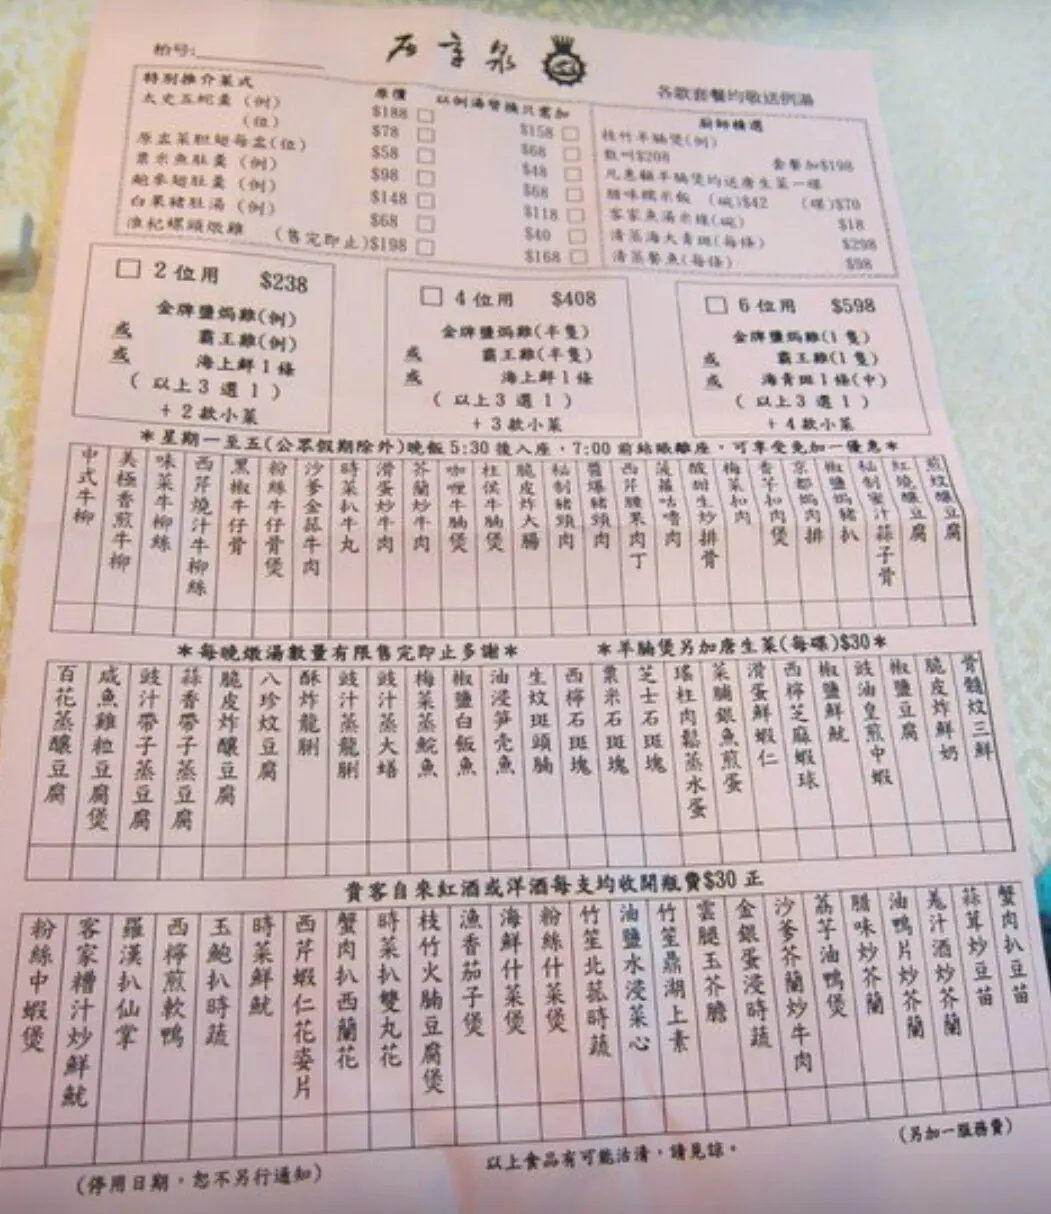 枱号:
各歡套餐均敬送例湯
特別推介菜式
原價
以例湯替換只需加
太史五蛇羹 (例)
$188
$158
(位)
$78
$68
原盅菜胆翅每盅(位)
$58
$48
粟米魚肚羹 (例)
$98
$68
鮑參翅肚羹 (例)
$148
$118
白果豬肚湯 (例)
$68
$40
淮杞螺頭燉雞 (售完即止)$198
$168
廚師精選
枝竹羊腩煲(例)
散叫$208 套餐加$198
凡惠顧羊腩煲均送唐生菜一碟
腊味糯米飯 (碗)$42 (碟)$70
客家魚湯米線(碗) $18
清蒸海大青斑(每條) $298
清蒸鰵魚(每條) $98
2位用 $238
金牌鹽焗雞(例)
或 霸王雞(例)
或 海上鮮1條
( 以上3選1 )
+ 2款小菜
4位用 $408
金牌鹽焗雞(半隻)
或 霸王雞(半隻)
或 海上鮮1條
( 以上3選1 )
+ 3款小菜
6位用 $598
金牌鹽焗雞(1隻)
或 霸王雞(1隻)
或 海青斑1條(中)
( 以上3選1 )
+ 4款小菜
*星期一至五(公眾假期除外)晚飯5:30後入座,7:00前結賬離座,可享受免加一優惠*
中式牛柳
美極香煎牛柳
味菜牛柳絲
西芹燒汁牛柳絲
黑椒牛仔骨
粉絲牛仔骨煲
沙爹金菇牛肉
時菜扒牛丸
滑蛋炒牛肉
芥蘭炒牛肉
咖喱牛腩煲
柱侯牛腩煲
脆皮炸大腸
秘制豬頸肉
醬爆豬頸肉
西芹腰果肉丁
菠蘿咕嚕肉
酸甜生炒排骨
梅菜扣肉
香芋扣肉煲
京都焗肉排
椒鹽焗豬扒
秘制蜜汁蒜子骨
紅燒釀豆腐
煎炆釀豆腐
*每晚燉湯數量有限售完即止多謝*
*羊腩煲另加唐生菜(每碟)$30*
百花蒸釀豆腐
咸魚雞粒豆腐煲
豉汁帶子蒸豆腐
蒜香帶子蒸豆腐
脆皮炸釀豆腐
八珍炆豆腐
酥炸龍脷
豉汁蒸龍脷
豉汁蒸大鱔
梅菜蒸鯇魚
椒鹽白飯魚
油浸笋壳魚
生炆斑頭腩
西檸石斑塊
粟米石斑塊
芝士石斑塊
瑤柱肉鬆蒸水蛋
菜脯銀魚煎蛋
滑蛋鮮蝦仁
西檸芝麻蝦球
椒鹽鮮魷
豉油皇煎中蝦
椒鹽豆腐
脆皮炸鮮奶
骨髓炆三鮮
貴客自來紅酒或洋酒每支均收開瓶費$30正
粉絲中蝦煲
客家糟汁炒鮮魷
羅漢扒仙掌
西檸煎軟鴨
玉鮑扒時蔬
時菜鮮魷
西芹蝦仁花姿片
蟹肉扒西蘭花
時菜扒雙丸花
枝竹火腩豆腐煲
漁香茄子煲
海鮮什菜煲
粉絲什菜煲
竹笙北菇時蔬
油鹽水浸菜心
竹笙鼎湖上素
雲腿玉芥膽
金銀蛋浸時蔬
沙爹芥蘭炒牛肉
荔芋油鴨煲
腊味炒芥蘭
油鴨片炒芥蘭
羌汁酒炒芥蘭
蒜茸炒豆苗
蟹肉扒豆苗
(停用日期,恕不另行通知)
以上食品有可能沽清,請見諒。
(另加一服務費)